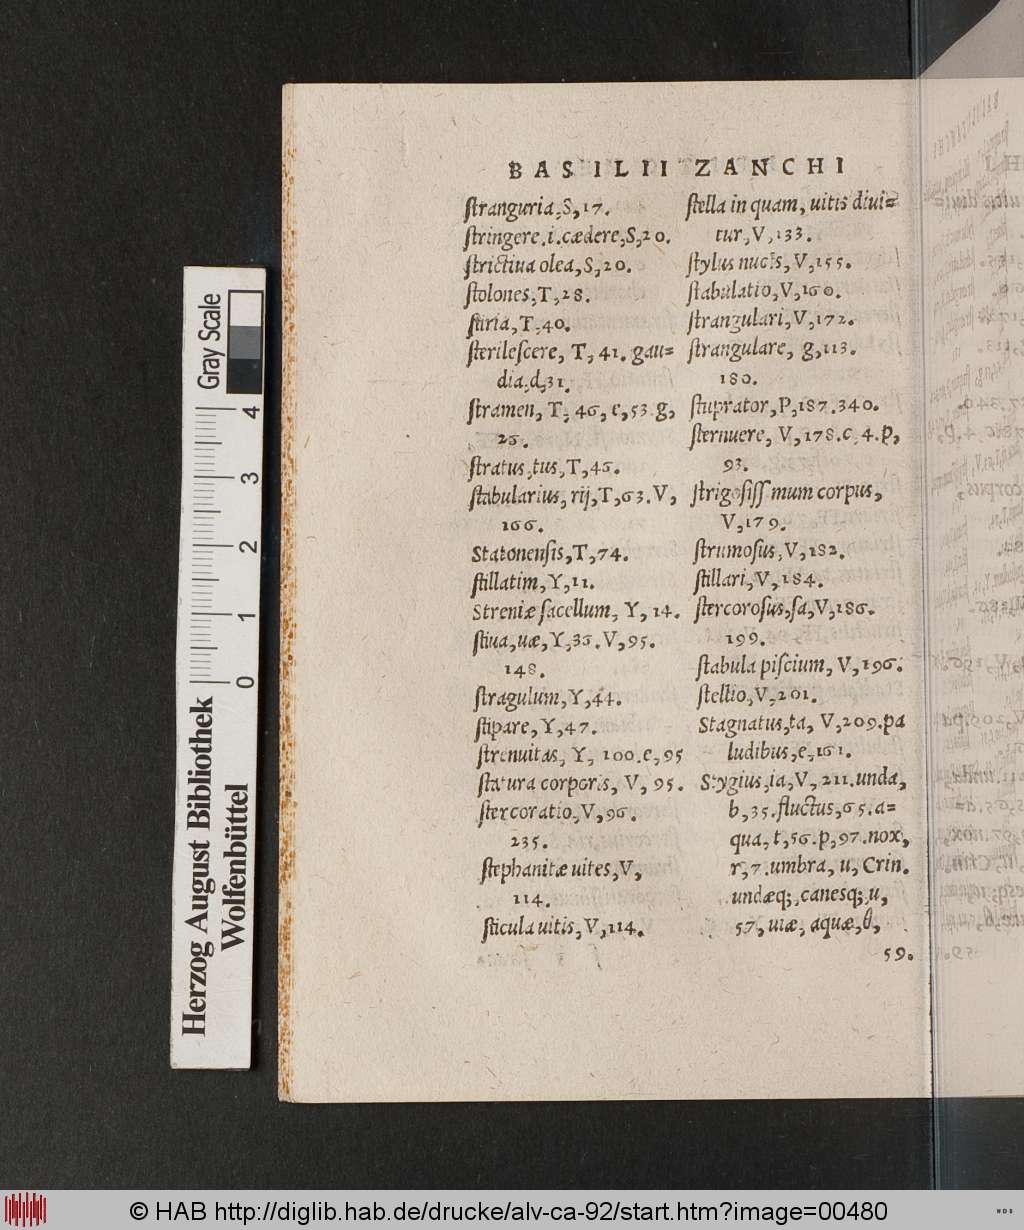 BASILII ZANCHI
ſtranguria, S, 17.
ſtringere .i. cædere, S, 20.
ſtrictiua olea, S, 20.
ſtolones, T, 28.
ſtiria, T, 40.
ſterileſcere, T, 41. gau=
dia, d, 31.
ſtramen, T, 46, c, 53. g,
26.
ſtratus, tus, T, 46.
ſtabularius, rij, T, 63. V,
166.
Statonenſis, T, 74.
ſtillatim, Y, 11.
Streniæ ſacellum, Y, 14.
ſtiua, uæ, Y, 36. V, 95.
148.
ſtragulum, Y, 44.
ſtipare, Y, 47.
ſtrenuitas, Y, 100. e, 95
ſtatura corporis, V, 95.
ſtercoratio, V, 96.
235.
ſtephanitæ uites, V,
114.
ſticula uitis, V, 114.
ſtella in quam, uitis diui=
tur, V, 133.
ſtylus nucis, V, 155.
ſtabulatio, V, 160.
ſtrangulari, V, 172.
ſtrangulare, g, 113.
180.
ſtuprator, P, 187. 340.
ſternuere, V, 178. c, 4. p,
93.
ſtrigoſiſſ mum corpus,
V, 179.
ſtrumoſus, V, 182.
ſtillari, V, 184.
ſtercoroſus, ſa, V, 186.
199.
ſtabula piſcium, V, 196.
ſtellio, V, 201.
Stagnatus, ta, V, 209. pa
ludibus, e, 161.
Stygius, ia, V, 211. unda,
b, 35. fluctus, 65. a=
qua, t, 56. p, 97. nox,
r, 7. umbra, u, Crin.
undæq;, canesq;, u,
57, uiæ, aquæ, θ,
59.
Gray Scale
0 1 2 3 4
Herzog August Bibliothek
Wolfenbüttel
© HAB http://diglib.hab.de/drucke/alv-ca-92/start.htm?image=00480